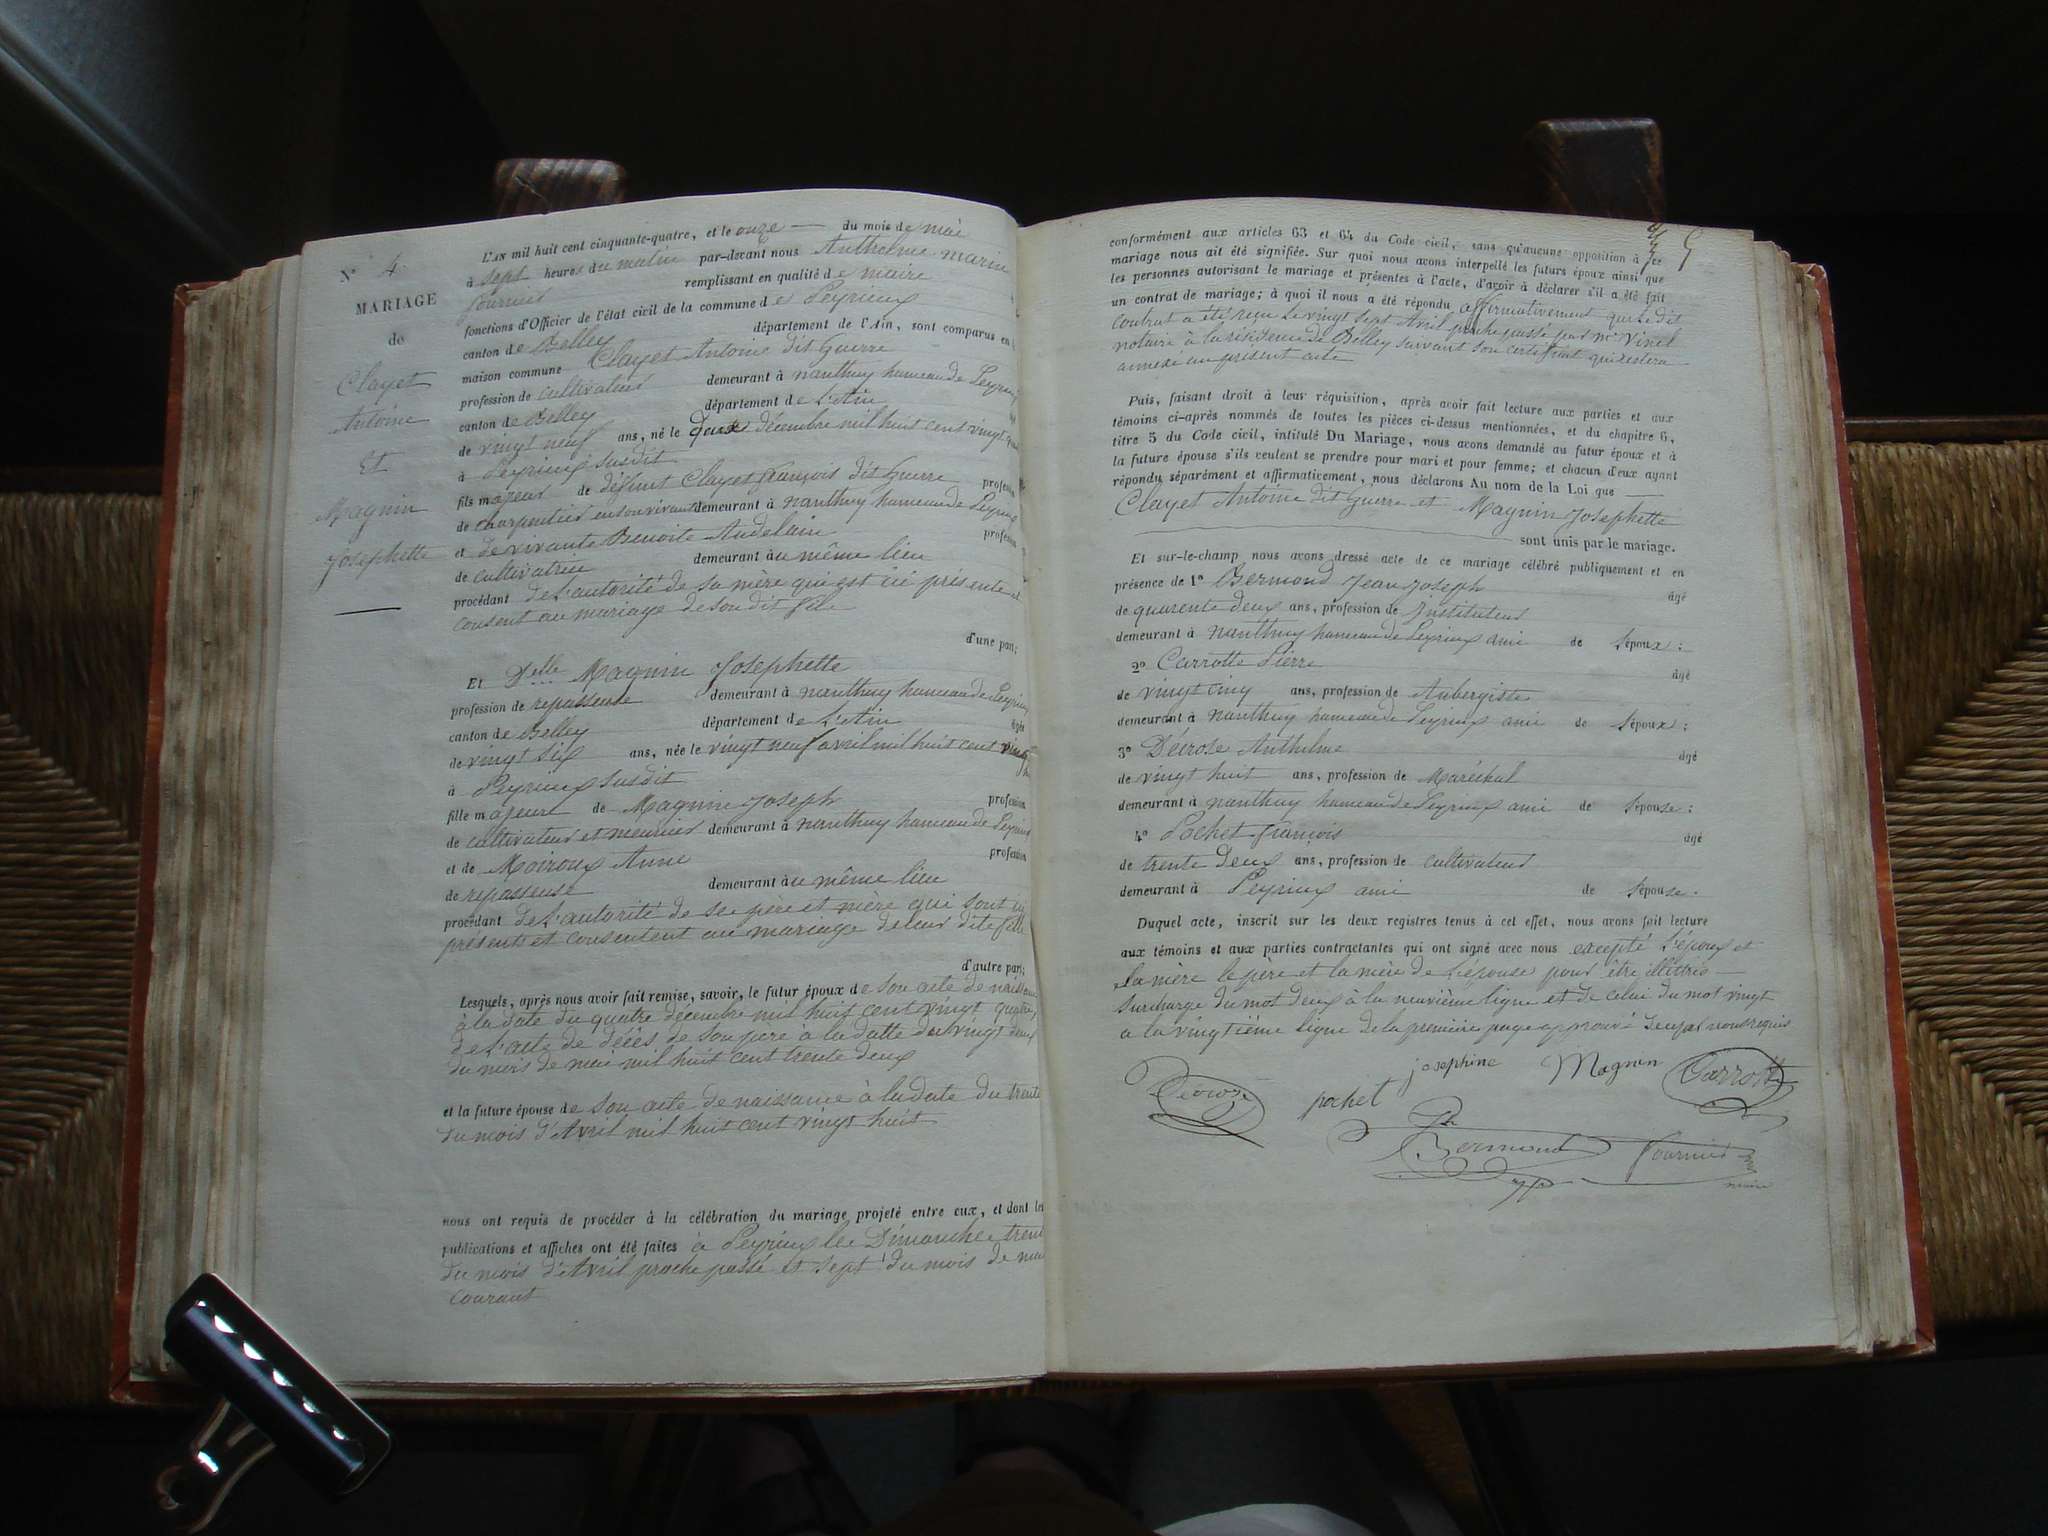 N° 4
MARIAGE
de
Clayet
Antoine
Et
Magnin
Josephette
L'AN mil huit cent cinquante-quatre, et le onze du mois de mai
à sept heures du matin par-devant nous Anthelme marin
fournier remplissant en qualité de maire
fonctions d'Officier de l'état civil de la commune de Peyrieux
canton de Belley département de l'Ain, sont comparus en
maison commune Clayet Antoine dit Guerre
profession de cultivateur demeurant à nanthuy hameau de Peyrieux
canton de Belley département de L'Ain
de vingt neuf ans, né le deux décembre mil huit cent vingt
à Peyrieux susdit
fils majeur de défunt Clayet françois dit Guerre profession
de charpentier en son vivant demeurant à nanthuy hameau de Peyrieux
et de vivante Benoite Andelain profession
de cultivatrice demeurant au même lieu
procédant de L'autorité de sa mère qui est ici présente et
consent au mariage de son dit fils
d'une part;
Et Delle Magnin Josephette
profession de repasseuse demeurant à nanthuy hameau de Peyrieux
canton de Belley département de L'Ain âgée
de vingt six ans, née le vingt neuf avril mil huit cent vingt
à Peyrieux susdit
fille majeure de Magnin Joseph profession
de cultivateur et meunier demeurant à nanthuy hameau de Peyrieux
et de Moiroux Anne profession
de repasseuse demeurant au même lieu
procédant de L'autorité de ses père et mère qui sont ici
présents et consentent au mariage de leur dite fille
d'autre part;
Lesquels, après nous avoir fait remise, savoir, le futur époux de son acte de naissance
à la date du quatre décembre mil huit cent vingt quatre,
de L'acte de décès de son père à la datte du vingt deux
du mois de mai mil huit cent trente deux
et la future épouse de son acte de naissance à la date du trente
du mois d'Avril mil huit cent vingt huit
nous ont requis de procéder à la célébration du mariage projeté entre eux, et dont les
publications et affiches ont été faites à Peyrieux les Dimanches trente
du mois d'Avril proche passé et sept du mois de mai
courant
5
conformément aux articles 63 et 64 du Code civil, sans qu'aucune opposition à ce
mariage nous ait été signifiée. Sur quoi nous avons interpellé les futurs époux ainsi que
les personnes autorisant le mariage et présentes à l'acte, d'avoir à déclarer s'il a été fait
un contrat de mariage; à quoi il nous a été répondu affirmativement que le dit
contrat a été reçu le vingt sept Avril proche passé par me Vinet
notaire à la résidence de Belley suivant son certificat qui restera
annexé au présent acte
Puis, faisant droit à leur réquisition, après avoir fait lecture aux parties et aux
témoins ci-après nommés de toutes les pièces ci-dessus mentionnées, et du chapitre 6,
titre 5 du Code civil, intitulé Du Mariage, nous avons demandé au futur époux et à
la future épouse s'ils veulent se prendre pour mari et pour femme; et chacun d'eux ayant
répondu séparément et affirmativement, nous déclarons Au nom de la Loi que
Clayet Antoine dit Guerre et Magnin Josephette
sont unis par le mariage.
Et sur-le-champ nous avons dressé acte de ce mariage célébré publiquement et en
présence de 1° Bermond Jean Joseph âgé
de quarente deux ans, profession de Instituteur
demeurant à nanthuy hameau de Peyrieux ami de l'époux;
2° Carrotte Pierre âgé
de vingt cinq ans, profession de Aubergiste
demeurant à nanthuy hameau de Peyrieux ami de l'époux;
3° Décrose Anthelme âgé
de vingt huit ans, profession de Maréchal
demeurant à nanthuy hameau de Peyrieux ami de l'épouse;
4° Pochet françois âgé
de trente deux ans, profession de cultivateur
demeurant à Peyrieux ami de l'épouse.
Duquel acte, inscrit sur les deux registres tenus à cet effet, nous avons fait lecture
aux témoins et aux parties contractantes qui ont signé avec nous excepté L'époux et
sa mère le père et la mère de L'épouse pour être illitrés
surcharge du mot deux à la neuvième ligne et de celui du mot vingt
a la vingtième ligne de la première page approuvé de ce nous requis
josephine Magnin Carrotte
Decrose pochet
Bermond fournier
maire